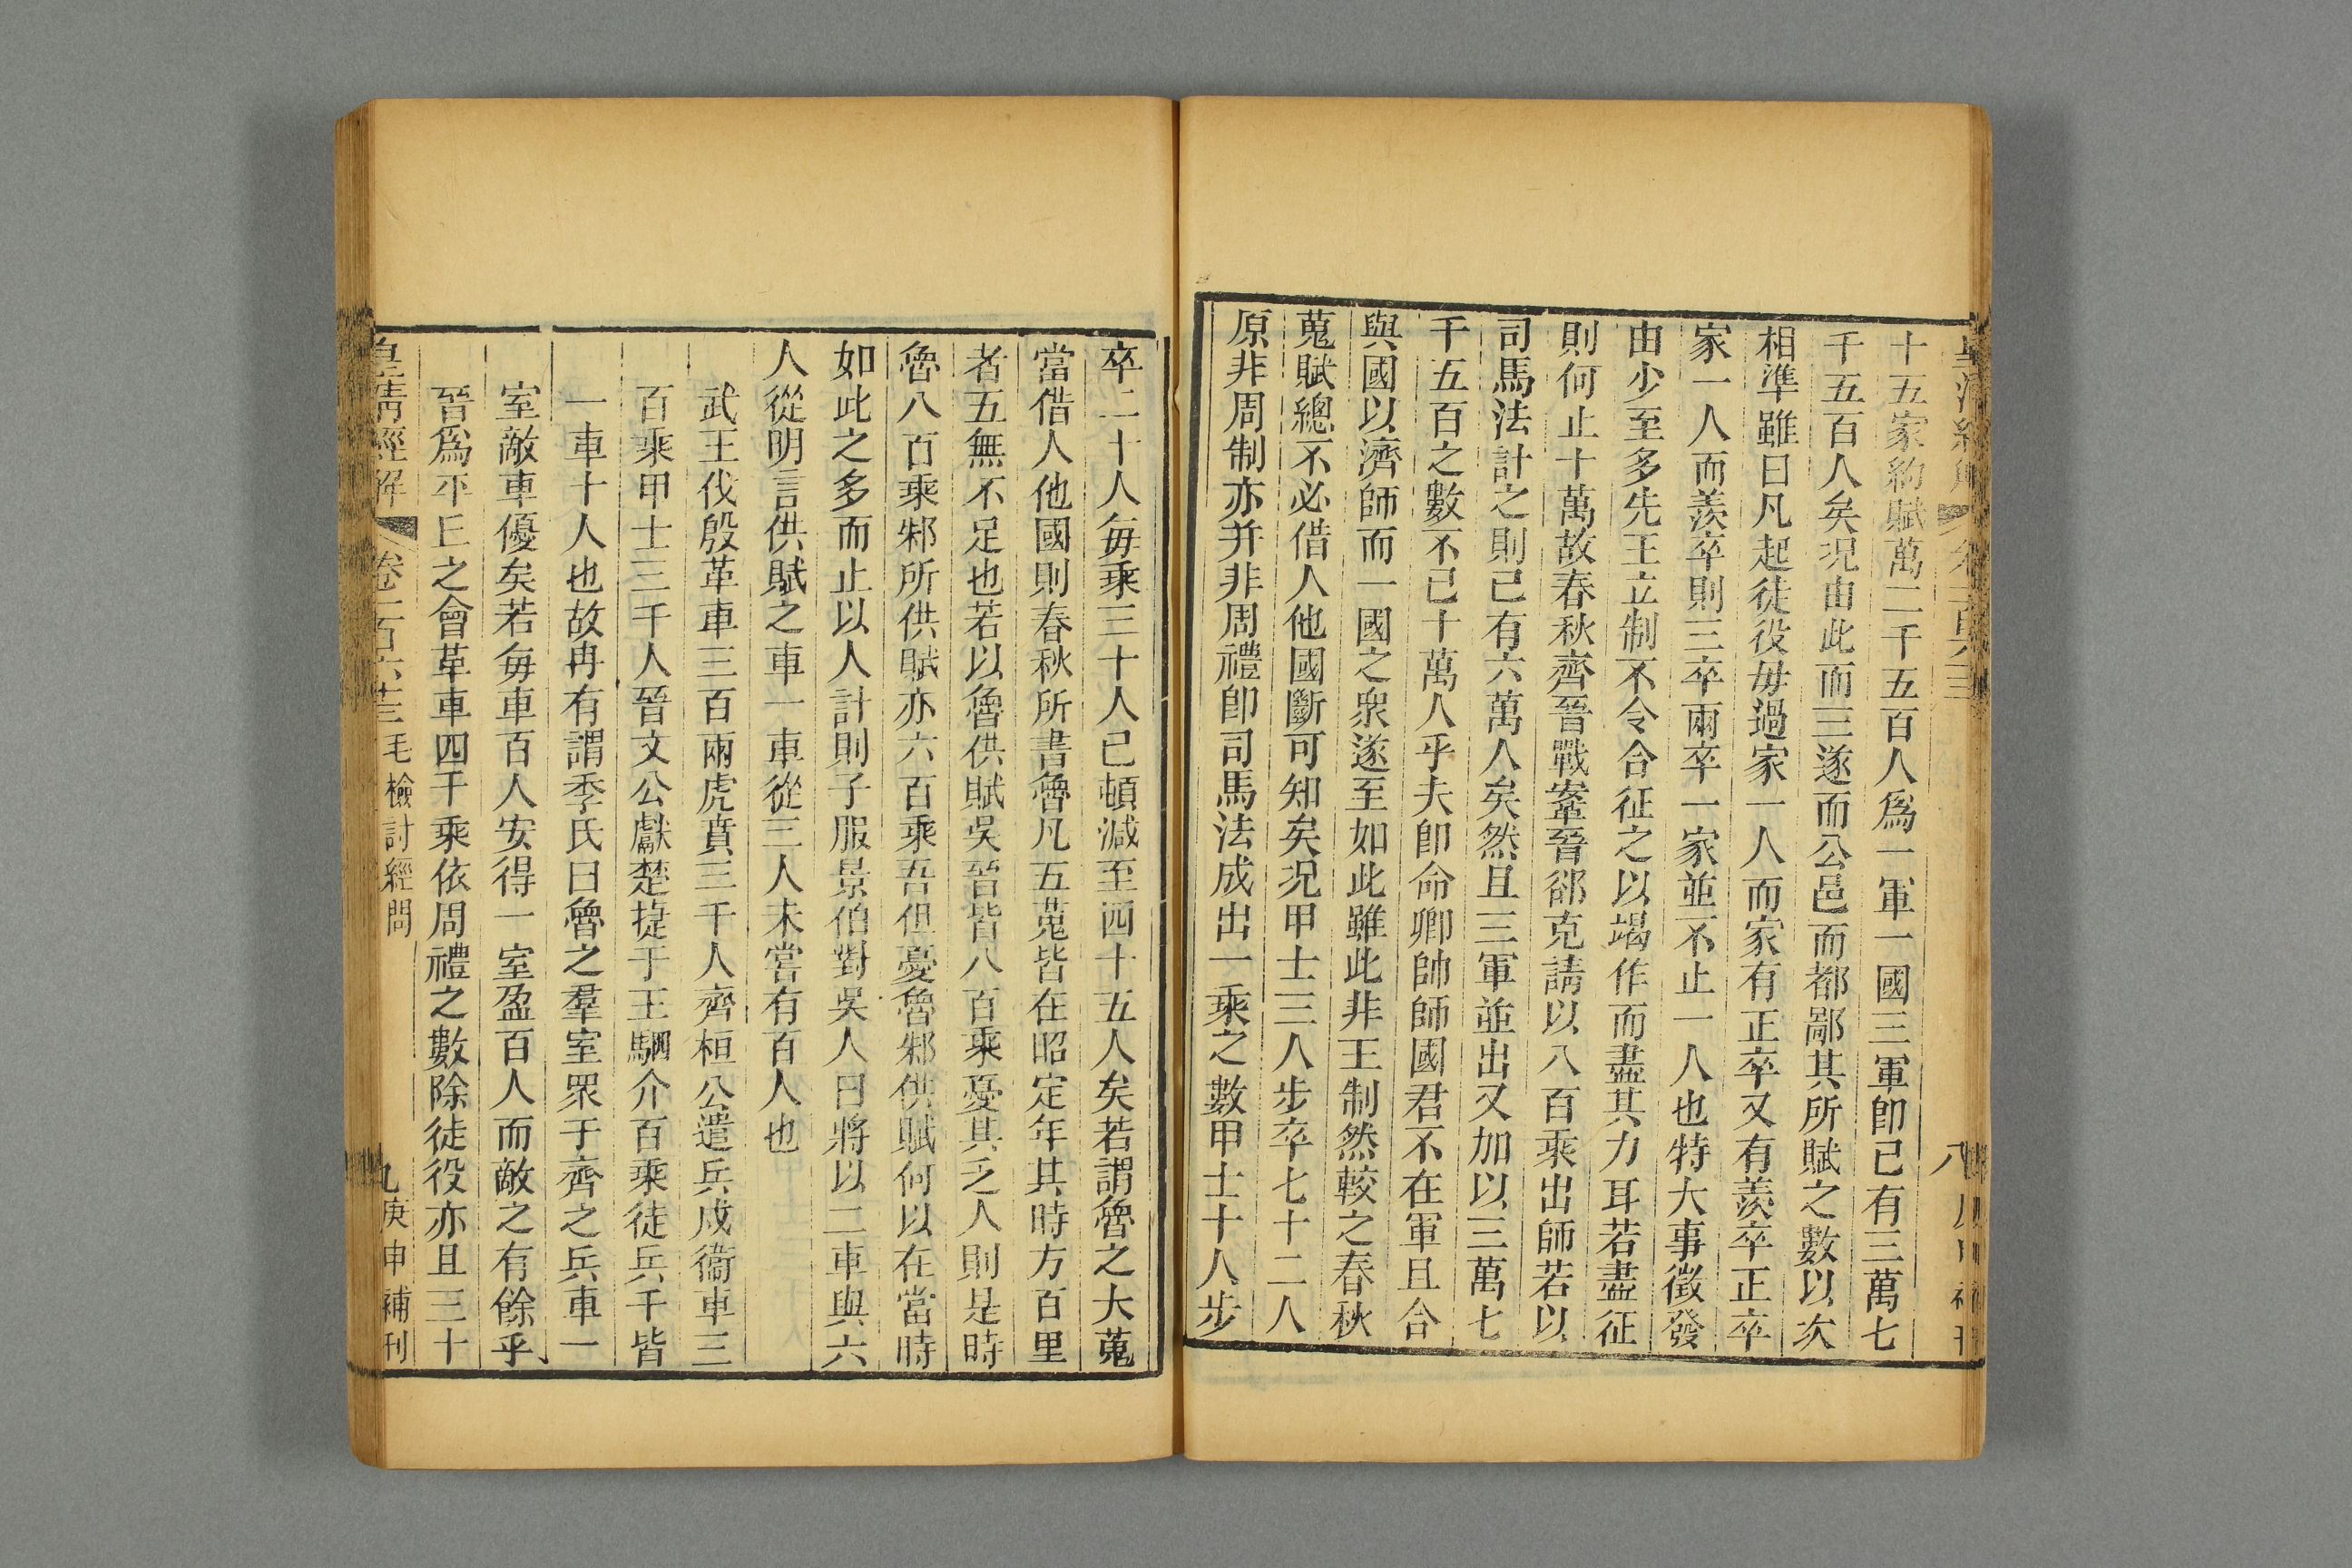 十五家約賦萬二千五百人爲一軍一國三軍卽已有三萬七
千五百人矣况由此而三遂而公邑而都鄙其所賦之數以次
相準雖曰凡起徒役毋過家一人而家有正卒又有羨卒正卒
家一人而羨卒則三卒兩卒一家並不止一人也特大事徵發
由少至多先王立制不令合征之以竭作而盡其力耳若盡征
則何止十萬故春秋齊晉戰鞌晉郤克請以八百乘出師若以
司馬法計之則已有六萬人矣然且三軍並出又加以三萬七
千五百之數不已十萬人乎夫卽命卿帥師國君不在軍且合
與國以濟師而一國之衆遂至如此雖此非王制然較之春秋
蒐賦總不必借人他國斷可知矣况甲士三人步卒七十二人
原非周制亦并非周禮卽司馬法成出一乘之數甲士十人步
卒二十人每乘三十人已頓減至四十五人矣若謂魯之大蒐
當借人他國則春秋所書魯凡五蒐皆在昭定年其時方百里
者五無不足也若以魯供賦吳晉皆八百乘憂其乏人則是時
魯八百乘邾所供賦亦六百乘吾但憂魯邾供賦何以在當時
如此之多而止以人計則子服景伯對吳人曰將以二車與六
人從明言供賦之車一車從三人未嘗有百人也
武王伐殷革車三百兩虎賁三千人齊桓公遣兵戍衞車三
百乘甲士三千人晉文公獻楚捷于王駟介百乘徒兵千皆
一車十人也故冉有謂季氏曰魯之羣室眾于齊之兵車一
室敵車優矣若每車百人安得一室盈百人而敵之有餘乎
晉爲平丘之會革車四千乘依周禮之數除徒役亦且三十
皇淸經解 卷一百六十三 毛檢討經問 九 庚申補刊